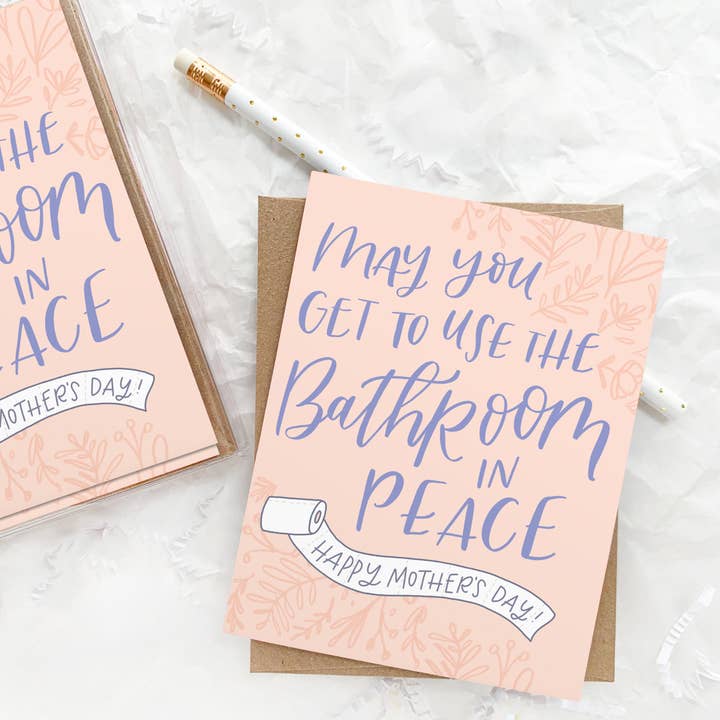 THE
IN
MOTHER'S DAY!
MAY YOU
GET TO USE THE
BathRoom
IN
PEACE
HAPPY MOTHER'S DAY!